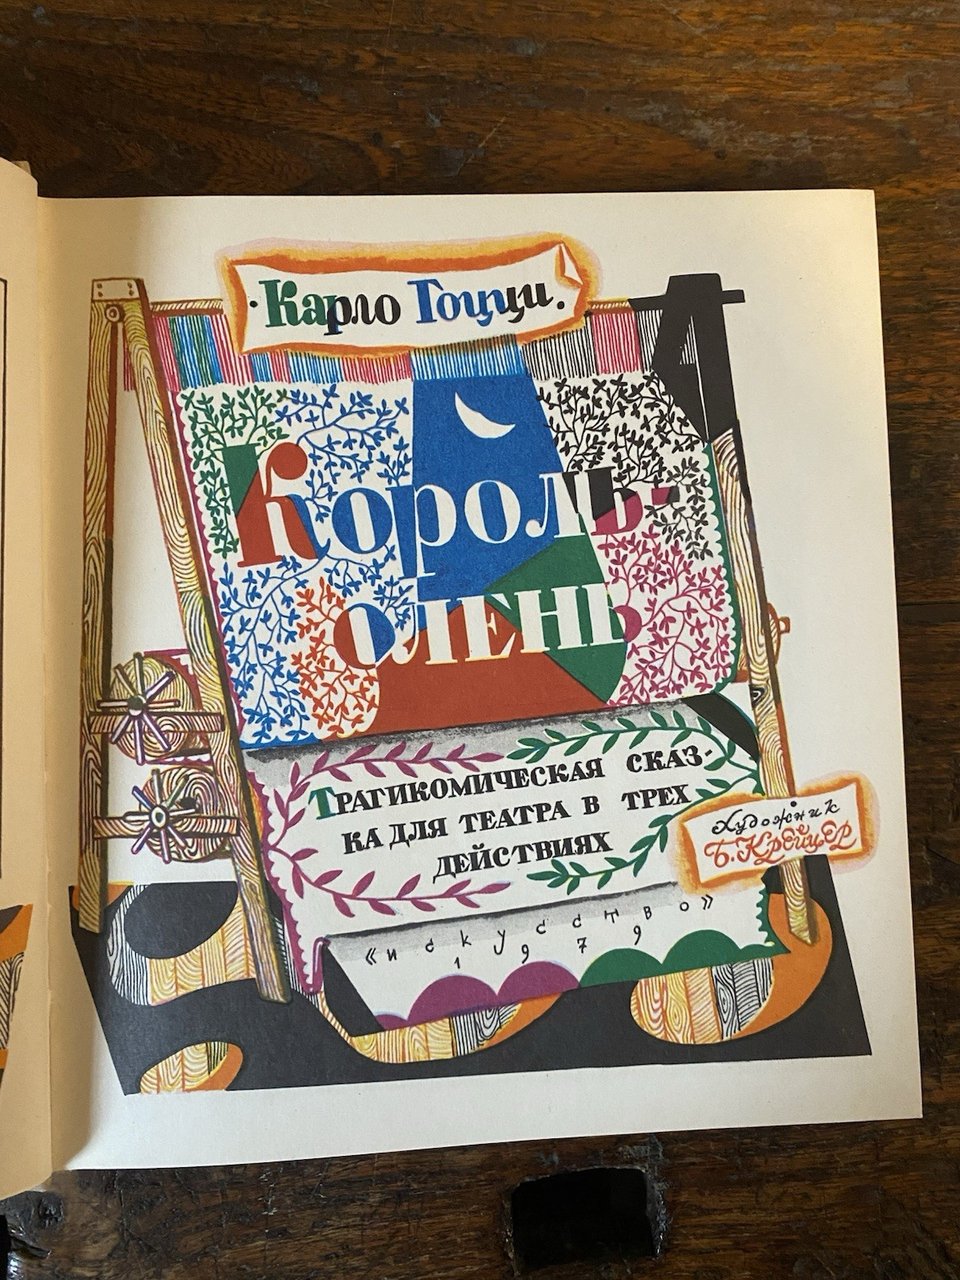 · Карло Гоцци.
Король-
олень
Трагикомическая сказ-
ка для театра в трех
действиях
Художник
Б. Крейцер
«искусство»
1979